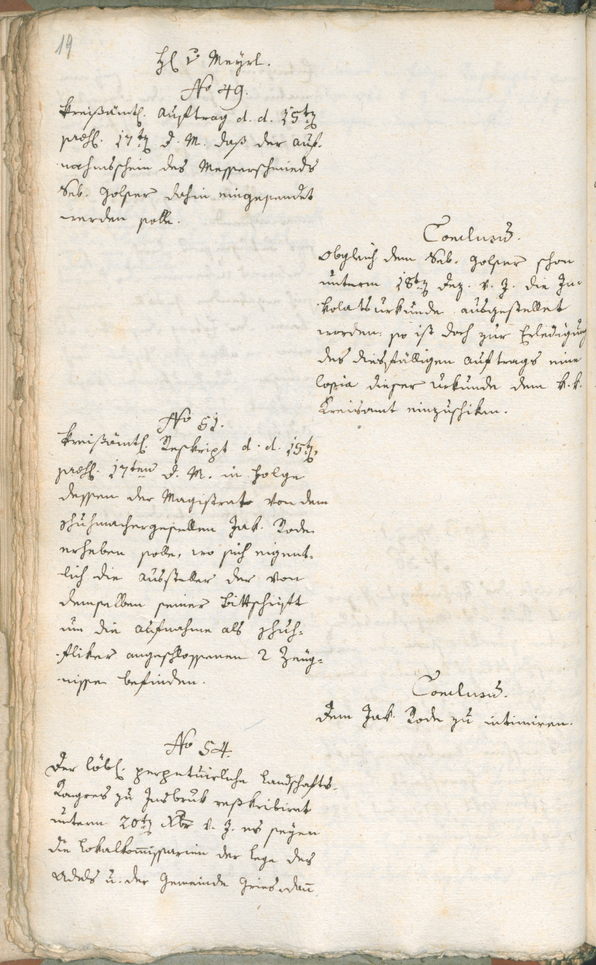 19
H v Meyrl.
No 49.
Kreißämtl. Auftrag d. d. 15ten
präs. 17ten d. M. daß der Auf-
nahmsschein des Messerschmieds
Seb. Holzer dahin eingesendet
werden solle.
Conclusum.
Obgleich dem Seb. Holzer schon
unterm 18ten Dez. v. J. die In-
kolatsurkunde ausgestellet
worden: so ist doch zur Erledigung
des diesfälligen Auftrags eine
Copia dieser Urkunde dem k. k.
Kreisamt einzuschiken.
No 51.
Kreißämtl. Reskript d. d. 15ten
präs. 17ten d. M. in Folge
dessen der Magistrat von dem
Schuhmachergesellen Jak. Rode
erheben solle, wo sich eigent-
lich die Aussteller der von
demselben seiner Bittschrift
um die Aufnahme als Schuh-
fliker angeschlossenen 2 Zeug-
nissen befinden.
Conclusum.
Dem Jak. Rode zu intimiren.
No 54.
Der löbl. perpetuirliche Landschafts
Kongres zu Insbruk reskribirt
unterm 20ten Xbr v. J. es seyen
die Lokalkommissarien der Lege des
Adels u. der Gemeinde Gries dann